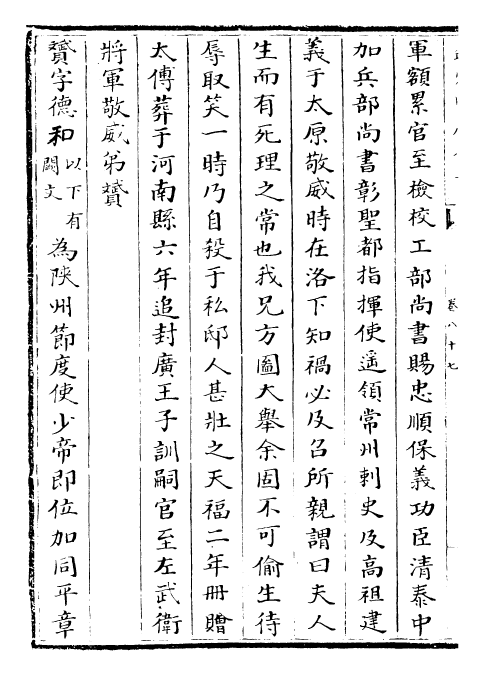 軍額累官至檢校工部尚書賜忠順保義功臣清泰中
加兵部尚書彰聖都指揮使遥領常州刺史及高祖建
義于太原敬威時在洛下知禍必及召所親謂曰夫人
生而有死理之常也我兄方圖大舉余固不可偷生待
辱取笑一時乃自殺于私邸人甚壯之天福二年冊贈
太傅葬于河南縣六年追封廣王子訓嗣官至左武衛
將軍敬威弟贇
贇字德和以下有闕文為陝州節度使少帝即位加同平章
卷八十七